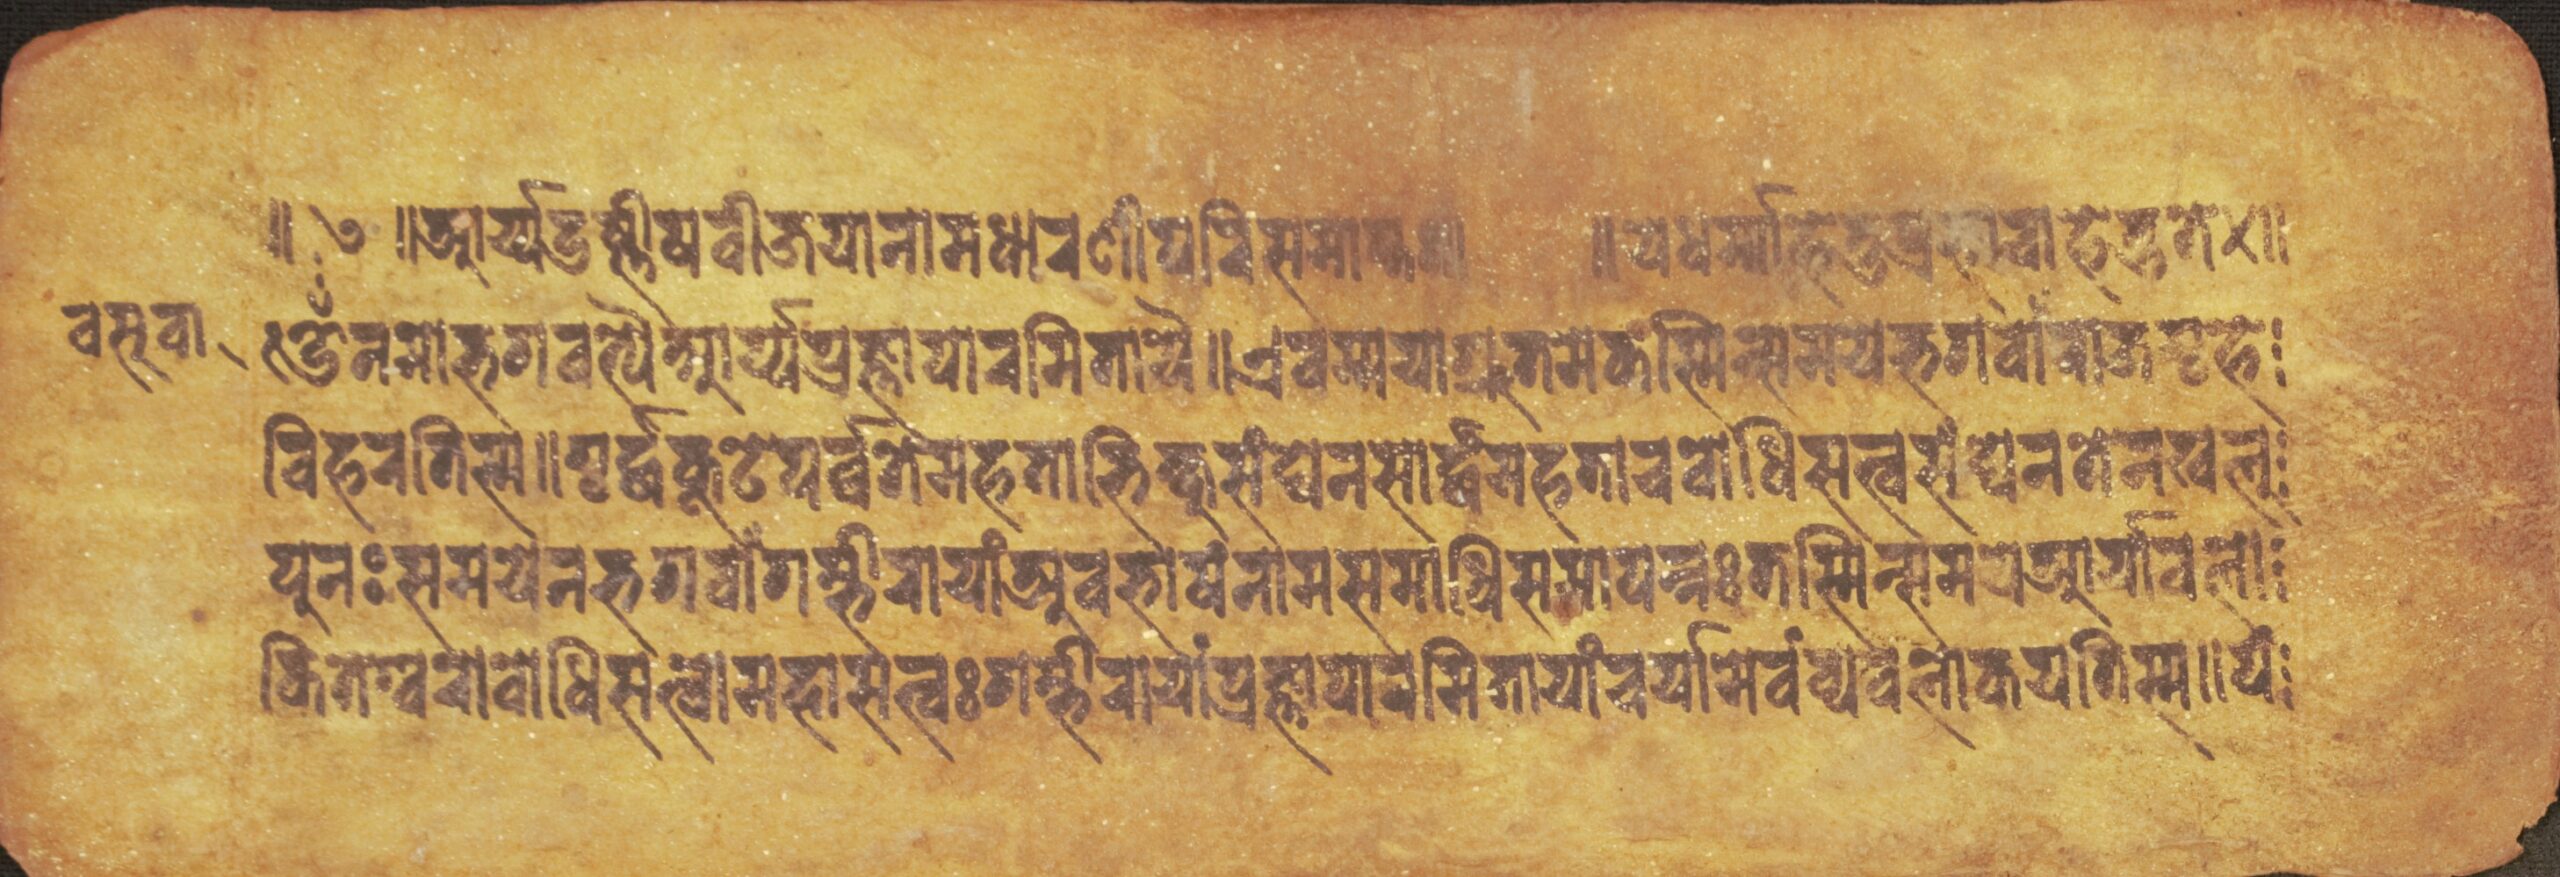 ॥ ७ ॥आर्य्यउष्णीषवीजयानामधारणीपरिसमाप्तः॥ ॥यधर्म्माहेतुप्रभावाहेतुते४॥
वसुवा
ॐनमोभगवत्यैआर्य्यप्रज्ञापारमितायै॥एवम्मयाश्रुतमेकस्मिन्समयेभगवांराजगृहे
विहरतिस्म॥गृर्द्धकूटेपर्व्वतेमहताभिक्षुसंघेनसार्द्धंमहताचबोधिसत्वसंघेनतेनखलु
पुनःसमयेनभगवांगम्भीरायांअवभाषंनामसमाधिसमापन्नःतस्मिन्समयेआर्यावलो
कितेश्वरोबोधिसत्वोमहासत्वःगम्भीरायांप्रज्ञापारमितायांचर्यामेवंव्यवलोकयतिस्म॥पं